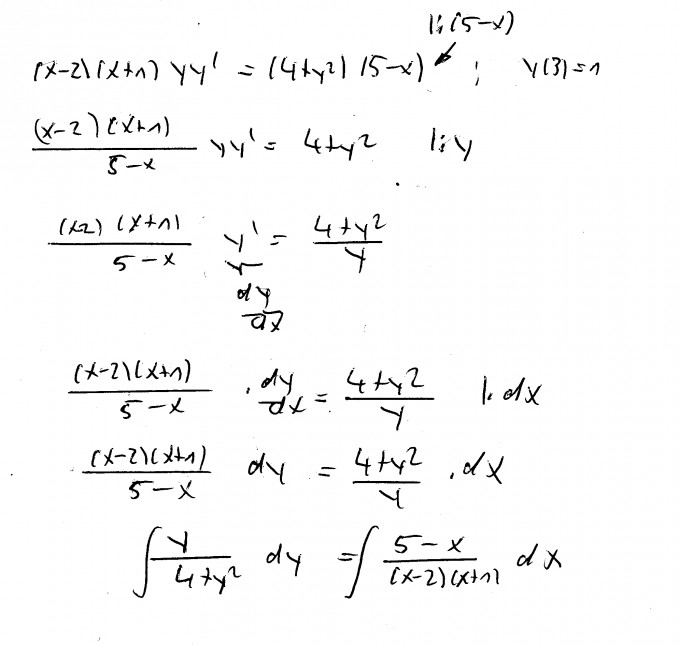 |:(5-x)
(x-2)(x+1) yy' = (4+y²) (5-x) ; y(3)=1
(x-2)(x+1)/5-x yy' = 4+y² |:y
(x2) (x+1)/5-x y' = 4+y²/y
dy/dx
(x-2)(x+1)/5-x · dy/dx = 4+y²/y |· dx
(x-2)(x+1)/5-x dy = 4+y²/y · dx
∫ y/4+y² dy = ∫ 5-x/(x-2)(x+1) dx